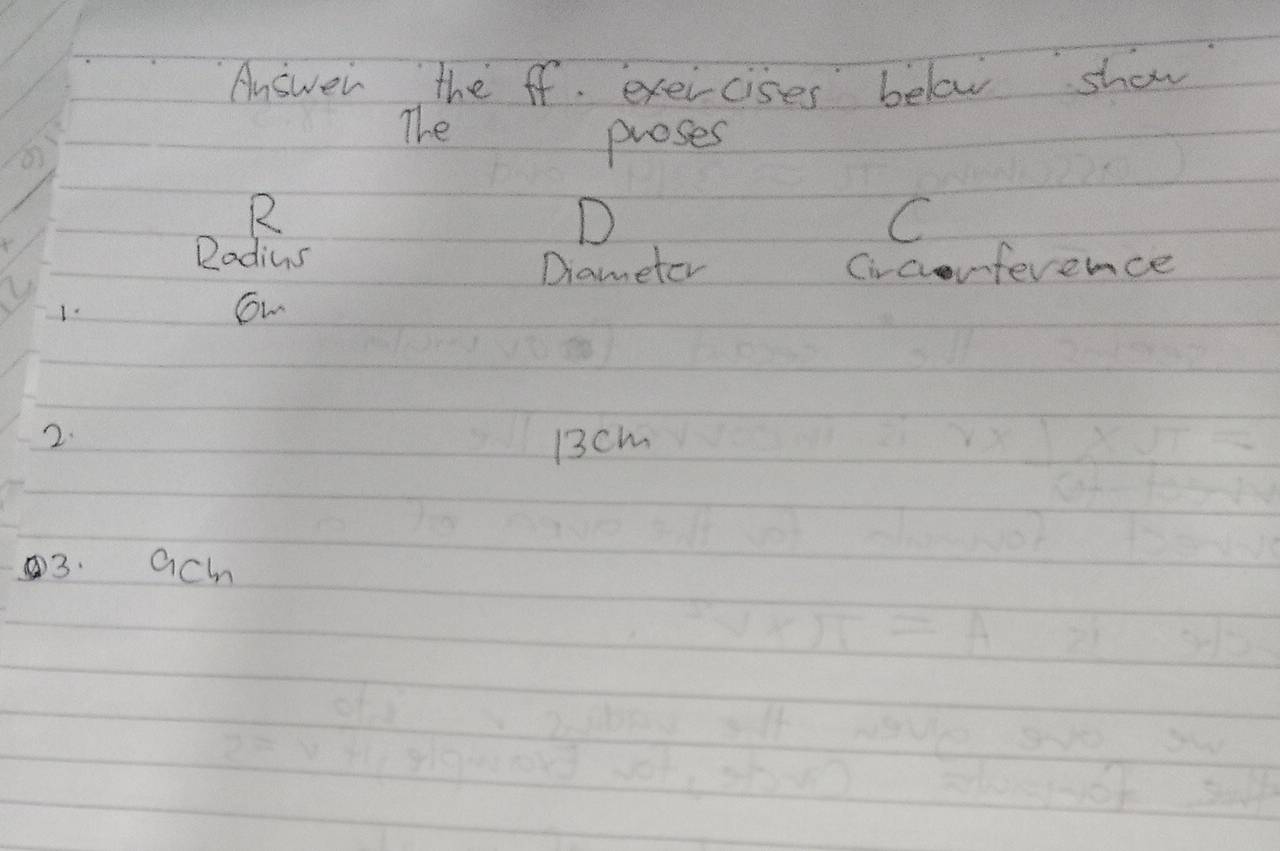 Answer the ff. exercises below show
The proses
R D C
Radius Diameter Circumference
1. 6m
2. 13cm
3. 9cm